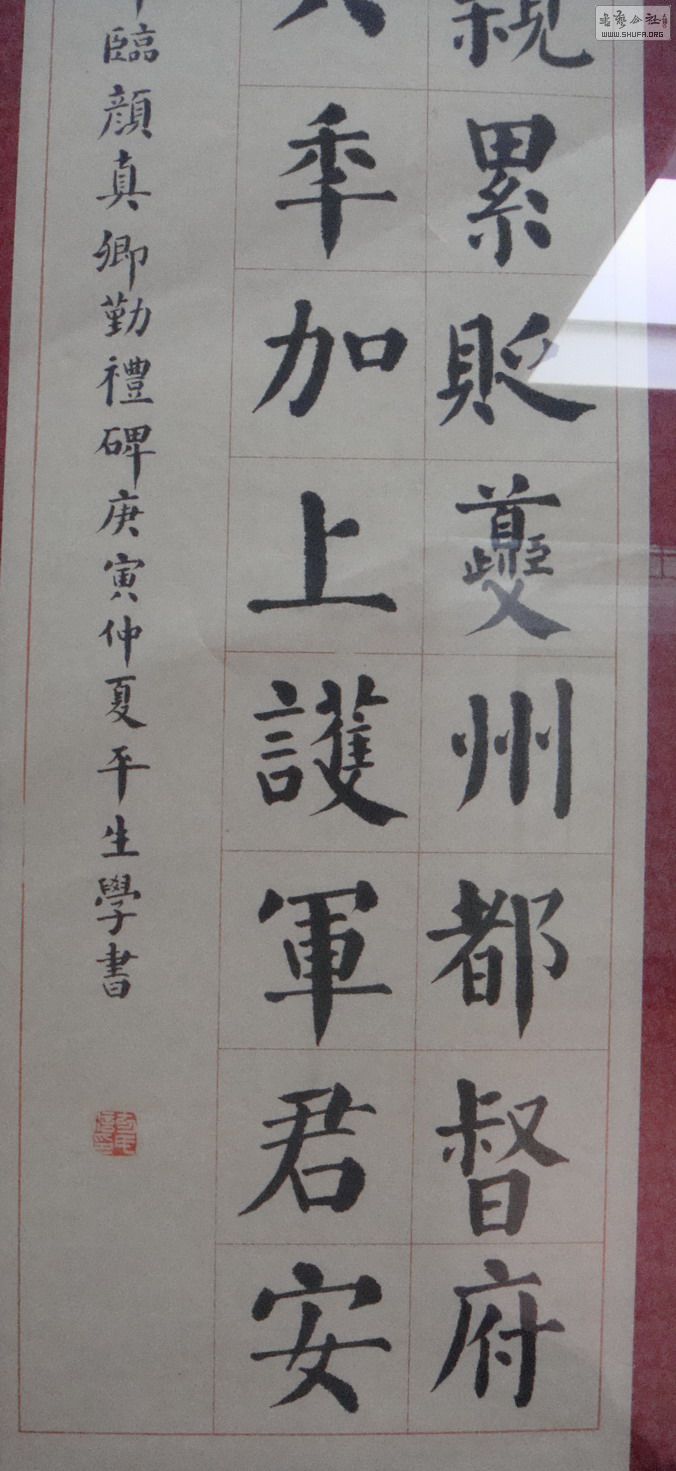 親累貶夔州都督府
六年加上護軍君安
臨顏真卿勤禮碑庚寅仲夏平生學書
書藝公社
WWW.SHUFA.ORG